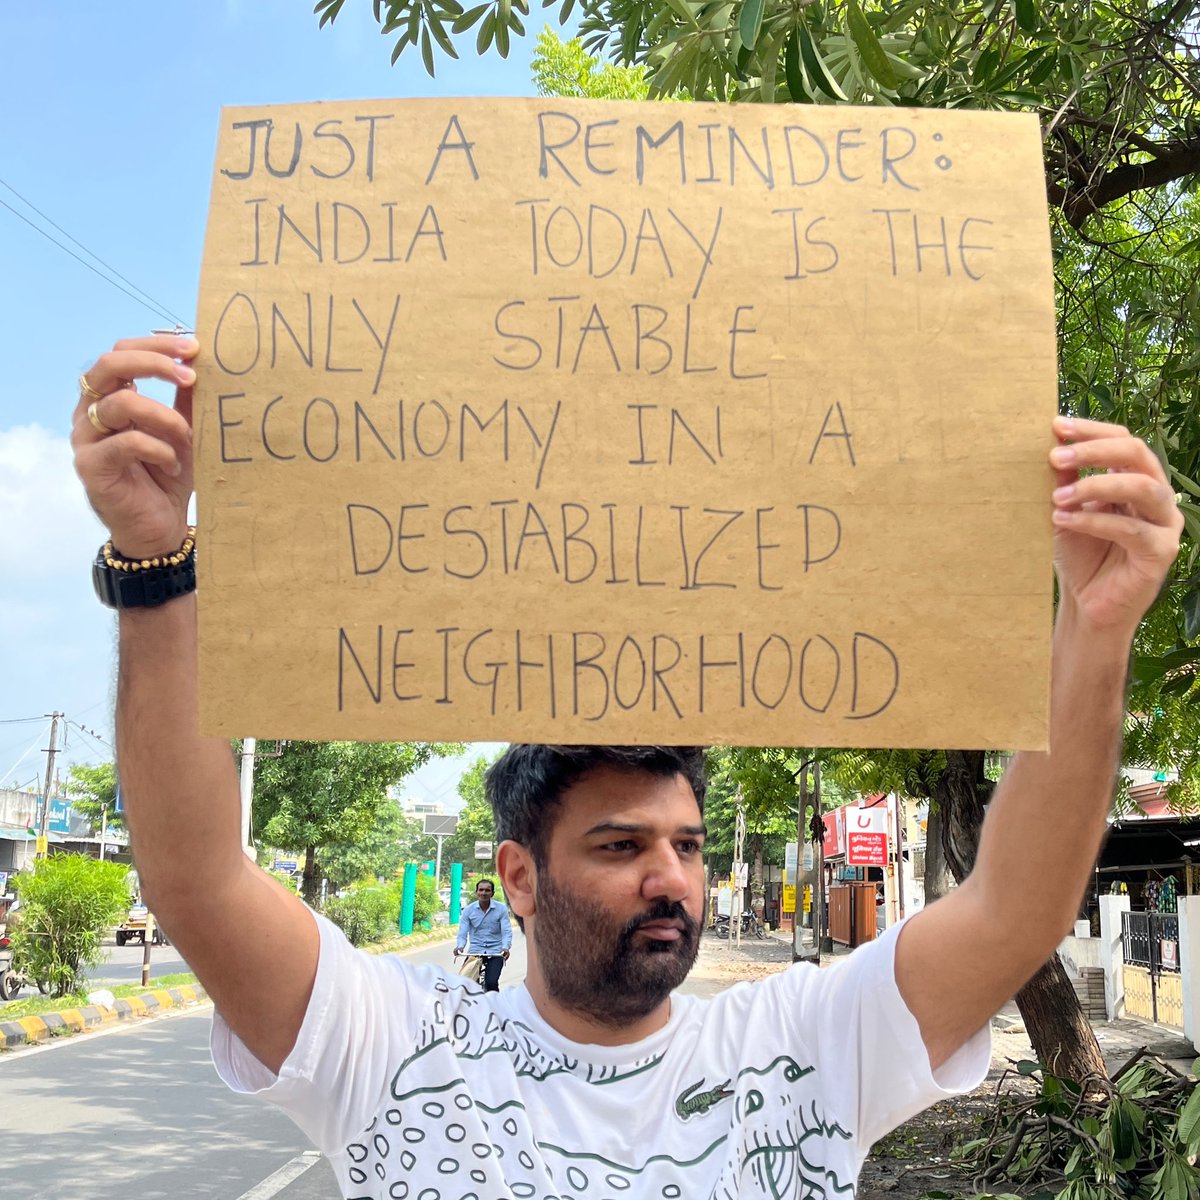 JUST A REMINDER:
INDIA TODAY IS THE
ONLY STABLE
ECONOMY IN A
DESTABILIZED
NEIGHBORHOOD